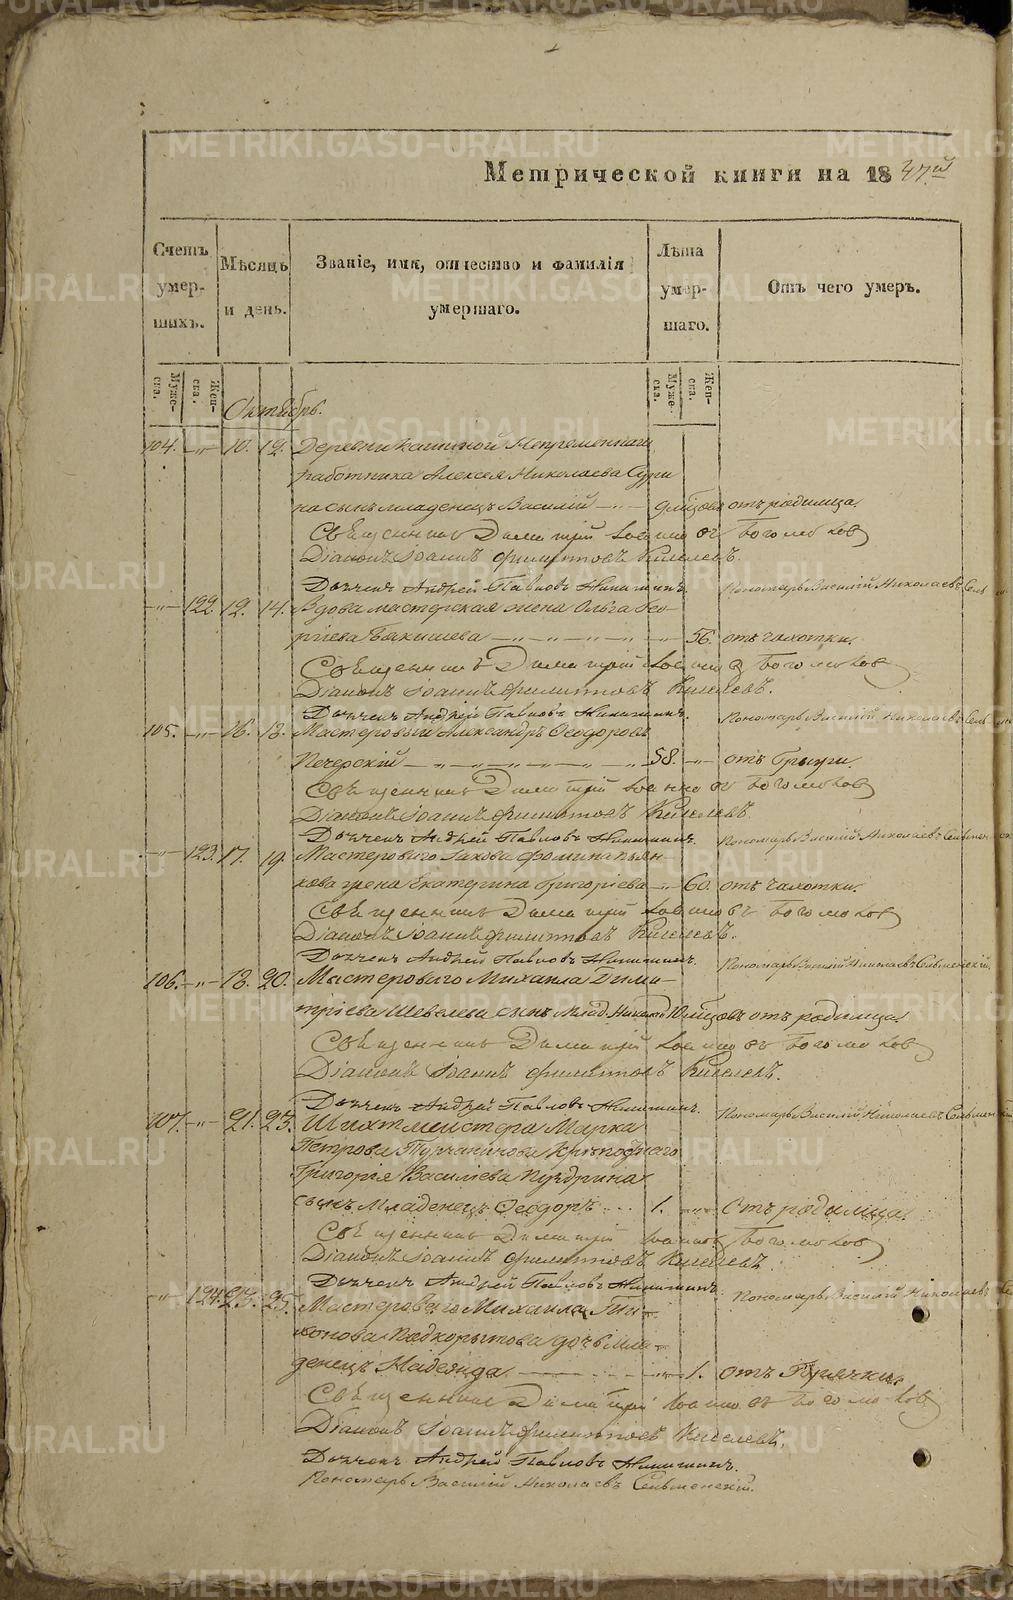 Метрической книги на 1847й
Счетъ умер-шихъ.
Мѣсяцъ и день.
Званіе, имя, отчество и фамилія умершаго.
Лѣта умер-шаго.
Отъ чего умеръ.
Муже-ска.
Жен-ска.
Муже-ска.
Жен-ска.
Октябрь.
104. —„— 10. 12. Деревни Непременнаго
работника Алексея Николаева
на сынъ младенецъ Василий —„— 9 мѣсцовъ отъ родимца.
Священникъ Димитрій Іоанновъ Богомоловъ
Діаконъ Іоаннъ Филиповъ Киселевъ.
Дьячекъ Андрей Павловъ Никитинъ. Пономарь Василій Николаевъ
—„— 122. 12. 14. Вдова мастерская жена Ольга Гео-
ргіева —„—„—„—„— 56. отъ чахотки.
Священникъ Димитрій Іоанновъ Богомоловъ
Діаконъ Іоаннъ Филиповъ Киселевъ.
Дьячекъ Андрей Павловъ Никитинъ. Пономарь Василій Николаевъ
105. —„— 16. 18. Мастеровый Александръ Ѳеодоровъ
Печерскій —„—„—„—„— 58. —„— отъ Грыжи.
Священникъ Димитрій Іоанновъ Богомоловъ
Діаконъ Іоаннъ Филиповъ Киселевъ.
Дьячекъ Андрей Павловъ Никитинъ. Пономарь Василій Николаевъ
—„— 123. 17. 19. Мастероваго Іакова Фомина Пьян-
кова жена Екатерина Григоріева —„— 60. отъ чахотки.
Священникъ Димитрій Іоанновъ Богомоловъ
Діаконъ Іоаннъ Филиповъ Киселевъ.
Дьячекъ Андрей Павловъ Никитинъ. Пономарь Василій Николаевъ Сельменскій.
106. —„— 18. 20. Мастероваго Михаила Дими-
тріева Шевелева сынъ млад. 10 мѣсцовъ отъ родимца.
Священникъ Димитрій Іоанновъ Богомоловъ
Діаконъ Іоаннъ Филиповъ Киселевъ.
Дьячекъ Андрей Павловъ Никитинъ. Пономарь Василій Николаевъ
107. —„— 21. 23. Шихтмейстера Марка
Петрова Турчанинова крѣпоснаго
Григорія Василіева
сынъ младенецъ Ѳеодоръ 1. —„— Отъ родимца.
Священникъ Димитрій Іоанновъ Богомоловъ
Діаконъ Іоаннъ Филиповъ Киселевъ.
Дьячекъ Андрей Павловъ Никитинъ. Пономарь Василій Николаевъ
—„— 124. 23. 25. Мастероваго Михаила Ти-
хонова Подкорытова дочь мла-
денецъ Надежда —„— 1. отъ Горячки.
Священникъ Димитрій Іоанновъ Богомоловъ
Діаконъ Іоаннъ Филиповъ Киселевъ.
Дьячекъ Андрей Павловъ Никитинъ.
Пономарь Василій Николаевъ Сельменскій.
METRIKI.GASO-URAL.RU